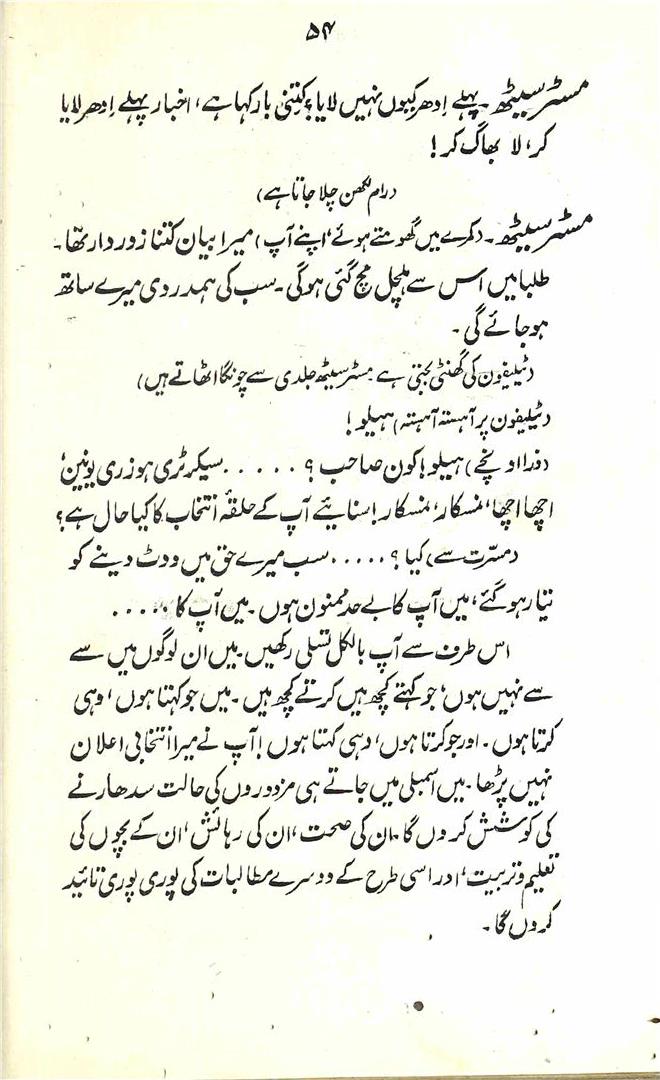 ۵۴
مسٹر سیٹھ۔ پہلے اِدھر کیوں نہیں لایا؟ کتنی بار کہا ہے، اخبار پہلے اِدھر لایا
کر، لا بھاگ کر!
(رام لکھن چلا جاتا ہے)
مسٹر سیٹھ۔ (کمرے میں گھومتے ہوئے، اپنے آپ) میرا بیان کتنا زوردار تھا۔
طلبا میں اس سے ہلچل مچ گئی ہوگی۔ سب کی ہمدردی میرے ساتھ
ہو جائے گی۔
(ٹیلیفون کی گھنٹی بجتی ہے۔ مسٹر سیٹھ جلدی سے چونگا اٹھاتے ہیں)
(ٹیلیفون پر آہستہ آہستہ) ہیلو!
(ذرا اونچے) ہیلو! کون صاحب؟ ..... سیکرٹری ہوزری یونین،
اچھا اچھا، نمسکار، نمسکار! سنائیے آپ کے حلقۂ انتخاب کا کیا حال ہے؟
(مسرّت سے) کیا؟ ..... سب میرے حق میں ووٹ دینے کو
تیار ہو گئے، میں آپ کا بے حد ممنون ہوں۔ میں آپ کا .....
اس طرف سے آپ بالکل تسلی رکھیں۔ میں ان لوگوں میں سے
سے نہیں ہوں، جو کہتے کچھ ہیں کرتے کچھ ہیں۔ میں جو کہتا ہوں، وہی
کرتا ہوں۔ اور جو کرتا ہوں، وہی کہتا ہوں! آپ نے میرا انتخابی اعلان
نہیں پڑھا۔ میں اسمبلی میں جاتے ہی مزدوروں کی حالت سدھارنے
کی کوشش کروں گا۔ ان کی صحت، ان کی رہائش، ان کے بچوں کی
تعلیم و تربیت، اور اسی طرح کے دوسرے مطالبات کی پوری پوری تائید
کروں گا۔